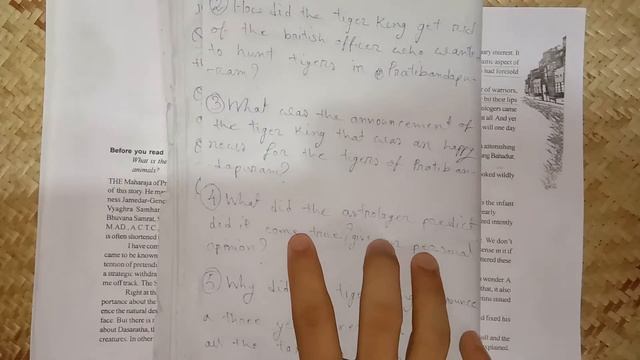 ② How did the tiger King get rid
of the british officer who wants
to hunt tigers in Pratibandapu-
-ram?
③ What was the announcement of
the tiger King that was an happy
news for the tigers of Pratiban-
-dapuram?
④ What did the astrologer predict
did it come true? give personal
opinion?
⑤ Why did
a three
all the
Before you read
What is the
animals?
THE Maharaja of Pr
of this story. He may
ness Jamedar-Gene
Vyaghra Samhar
Bhuvana Samrat,
M.A.D., A.C.T.C.
is often shortened
I have com
came to be known
tention of pretend
a strategic withdra
me off track. The
Right at th
portance about the
ence the natural des
face. But there is
about Dasaratha, th
creatures. In other
ary interest. It
aspect of
had foretold
of warriors,
bit their lips
ologers came
at all. And yet
will one day
astonishing
ng Bahadur.
ooked wildly
the infant
early
red intently
We don't
sense in it if
ttered these
wonder. A
that, it also
ns issued
d fixed his
ull and the
explained.